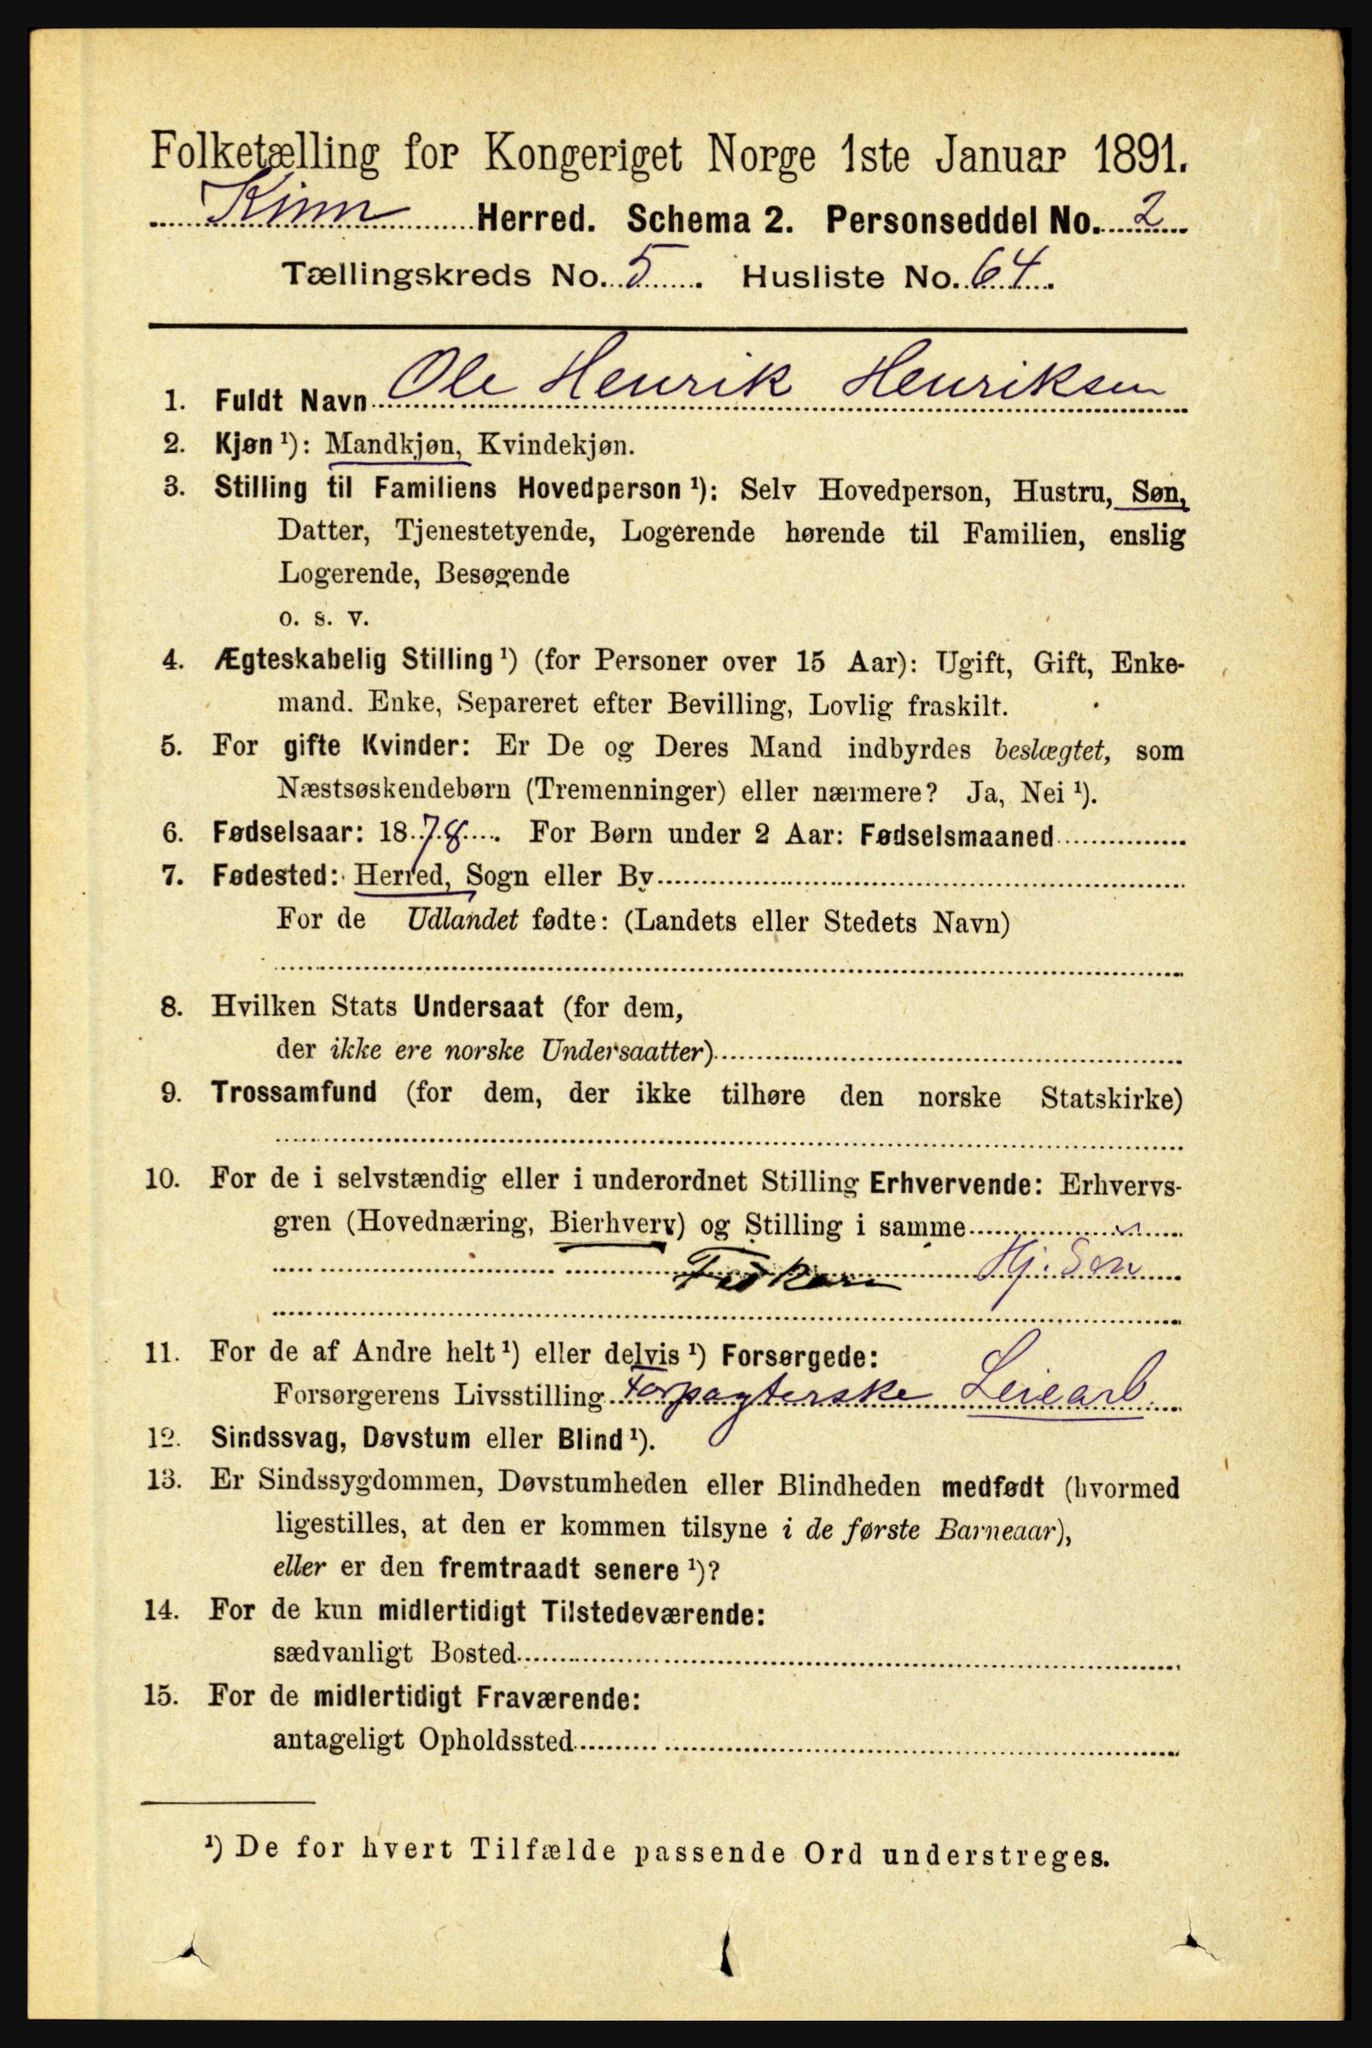 Folketælling for Kongeriget Norge 1ste Januar 1891.
Kinn Herred. Schema 2. Personseddel No. 2
Tællingskreds No. 5. Husliste No. 64.
1. Fuldt Navn Ole Henrik Henriksen
2. Kjøn ¹): Mandkjøn, Kvindekjøn.
3. Stilling til Familiens Hovedperson ¹): Selv Hovedperson, Hustru, Søn,
Datter, Tjenestetyende, Logerende hørende til Familien, enslig
Logerende, Besøgende
o. s. v.
4. Ægteskabelig Stilling ¹) (for Personer over 15 Aar): Ugift, Gift, Enke-
mand. Enke, Separeret efter Bevilling, Lovlig fraskilt.
5. For gifte Kvinder: Er De og Deres Mand indbyrdes beslægtet, som
Næstsøskendebørn (Tremenninger) eller nærmere? Ja, Nei ¹).
6. Fødselsaar: 1878. For Børn under 2 Aar: Fødselsmaaned
7. Fødested: Herred, Sogn eller By
For de Udlandet fødte: (Landets eller Stedets Navn)
8. Hvilken Stats Undersaat (for dem,
der ikke ere norske Undersaatter)
9. Trossamfund (for dem, der ikke tilhøre den norske Statskirke)
10. For de i selvstændig eller i underordnet Stilling Erhvervende: Erhvervs-
gren (Hovednæring, Bierhverv) og Stilling i samme
Fisker Hj. Søn
11. For de af Andre helt ¹) eller delvis ¹) Forsørgede:
Forsørgerens Livsstilling Forpagterske Leiearb.
12. Sindssvag, Døvstum eller Blind ¹).
13. Er Sindssygdommen, Døvstumheden eller Blindheden medfødt (hvormed
ligestilles, at den er kommen tilsyne i de første Barneaar),
eller er den fremtraadt senere ¹)?
14. For de kun midlertidigt Tilstedeværende:
sædvanligt Bosted
15. For de midlertidigt Fraværende:
antageligt Opholdssted
¹) De for hvert Tilfælde passende Ord understreges.